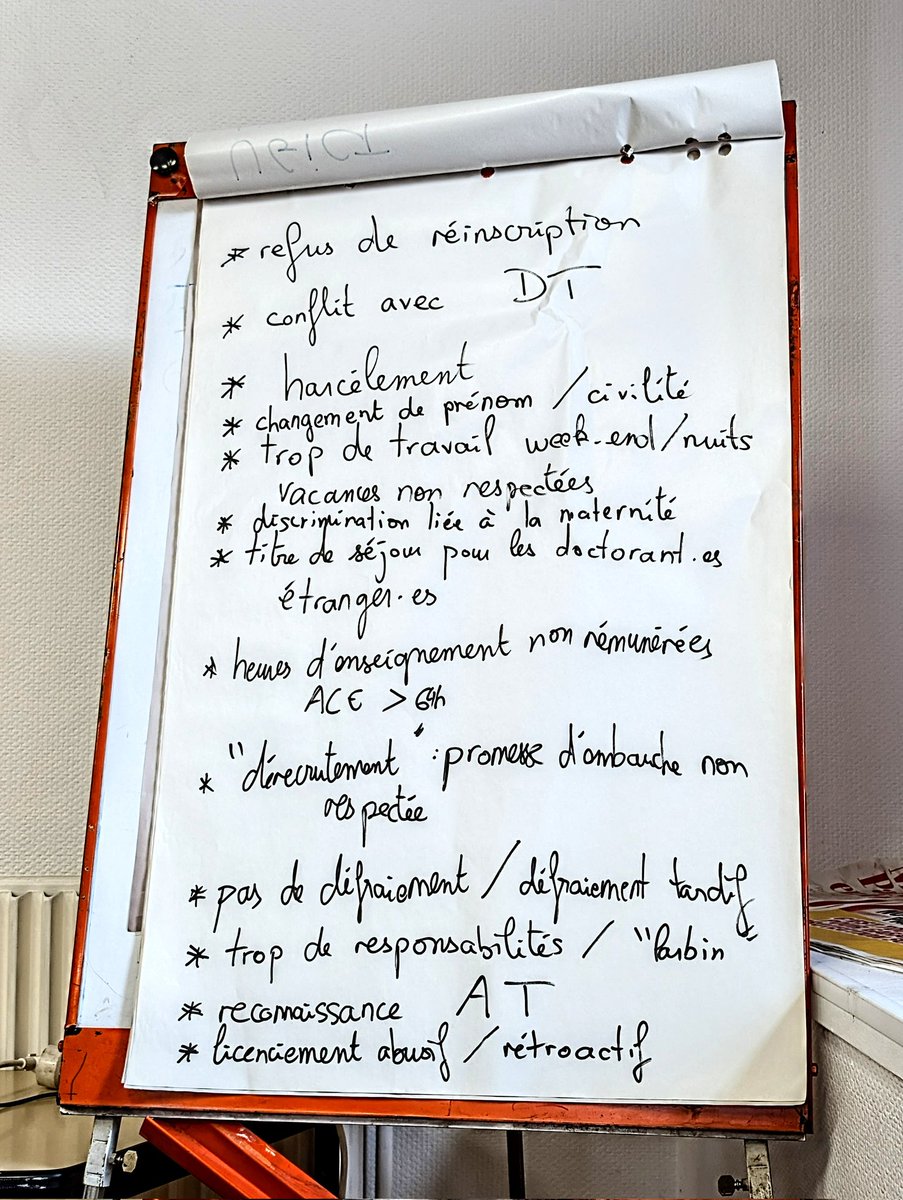 * refus de réinscription
* conflit avec DT
* harcèlement
* changement de prénom / civilité
* trop de travail week-end/nuits
vacances non respectées
* discrimination liée à la maternité
* titre de séjour pour les doctorant.es
étranger.es
* heures d'enseignement non rémunérées
ACE > 64h
* "dérecrutement" : promesse d'embauche non
respectée
* pas de défraiement / défraiement tardif
* trop de responsabilités / "larbin"
* reconnaissance AT
* licenciement abusif / rétroactif